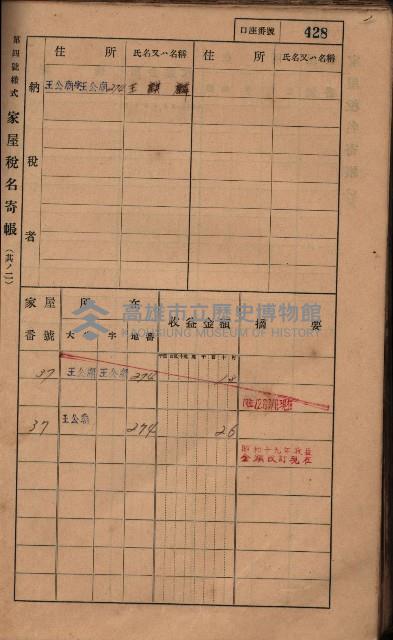 口座番號 428
第四號樣式 家屋稅名寄帳（其ノ二）
納稅者
住所 氏名又ハ名稱 住所 氏名又ハ名稱
王公廟 王公廟 274 王
家屋番號 所在 收益金額 摘要
大字 字 地番
37 王公廟 王公廟 274 18
37 王公廟 274 26
昭和十九年收益
金額改訂現在
高雄市立歷史博物館
KAOHSIUNG MUSEUM OF HISTORY